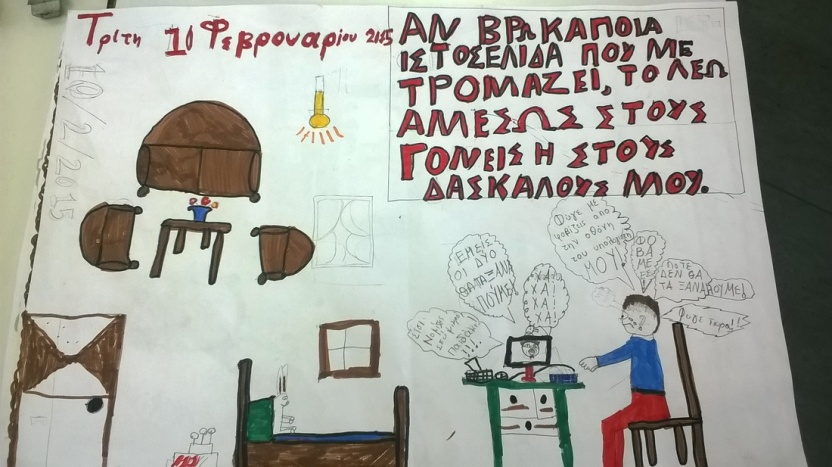 Τρίτη 10 Φεβρουαρίου 2015
10/2/2015
ΑΝ ΒΡΩ ΚΑΠΟΙΑ
ΙΣΤΟΣΕΛΙΔΑ ΠΟΥ ΜΕ
ΤΡΟΜΑΖΕΙ, ΤΟ ΛΕΩ
ΑΜΕΣΩΣ ΣΤΟΥΣ
ΓΟΝΕΙΣ Η ΣΤΟΥΣ
ΔΑΣΚΑΛΟΥΣ ΜΟΥ.
ΕΜΕΙΣ
ΟΙ ΔΥΟ
ΘΑ ΤΑ ΞΑΝΑ
ΠΟΥΜΕ!
ΧΑ!
ΧΑ!
ΧΑ!
Φύγε ΜΕ
από
την οθόνη
του
ΜΟΥ!
ΦΟ
ΒΑ
ΜΕ
ΠΟΤΕ
ΔΕΝ ΘΑ
ΤΑ ΞΑΝΑΠΟΥΜΕ!
Φύγε τώρα!!